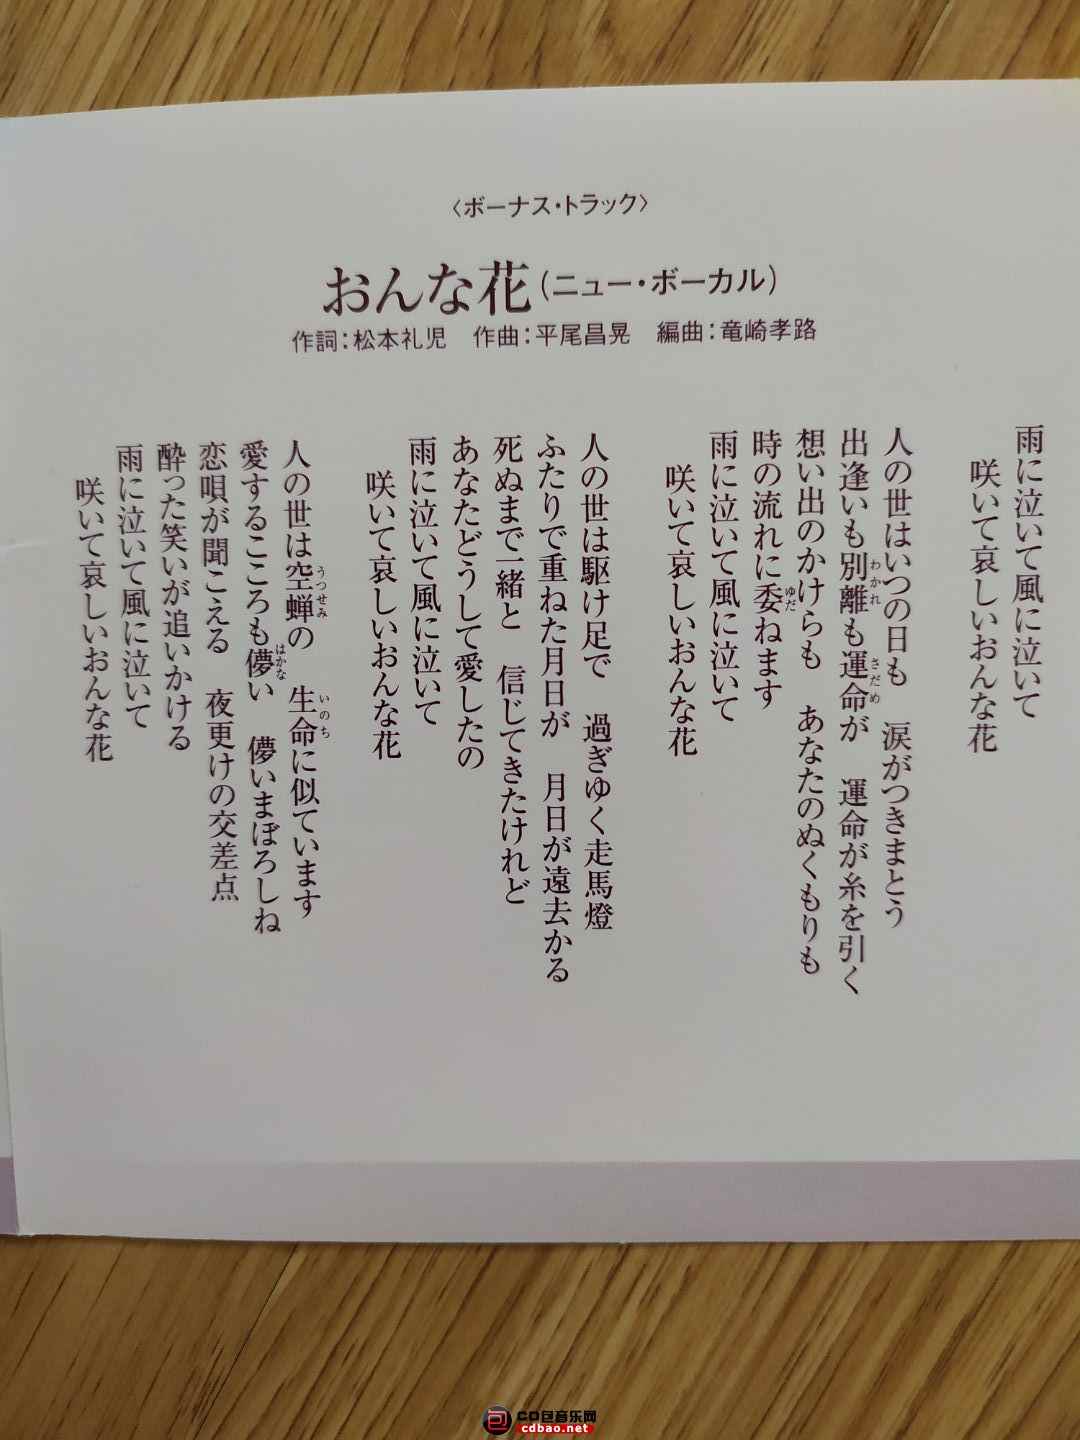 〈ボーナス・トラック〉
おんな花（ニュー・ボーカル）
作詞：松本礼児　作曲：平尾昌晃　編曲：竜崎孝路
雨に泣いて風に泣いて
咲いて哀しいおんな花
人の世はいつの日も　涙がつきまとう
出逢いも別離も運命が　運命が糸を引く
わかれ
さだめ
想い出のかけらも　あなたのぬくもりも
時の流れに委ねます
ゆだ
雨に泣いて風に泣いて
咲いて哀しいおんな花
人の世は駆け足で　過ぎゆく走馬燈
ふたりで重ねた月日が　月日が遠去かる
死ぬまで一緒と　信じてきたけれど
あなたどうして愛したの
雨に泣いて風に泣いて
咲いて哀しいおんな花
人の世は空蝉の　生命に似ています
うつせみ
いのち
愛するこころも儚い　儚いまぼろしね
はかな
恋唄が聞こえる　夜更けの交差点
酔った笑いが追いかける
雨に泣いて風に泣いて
咲いて哀しいおんな花
CD包音乐网
cdbao.net